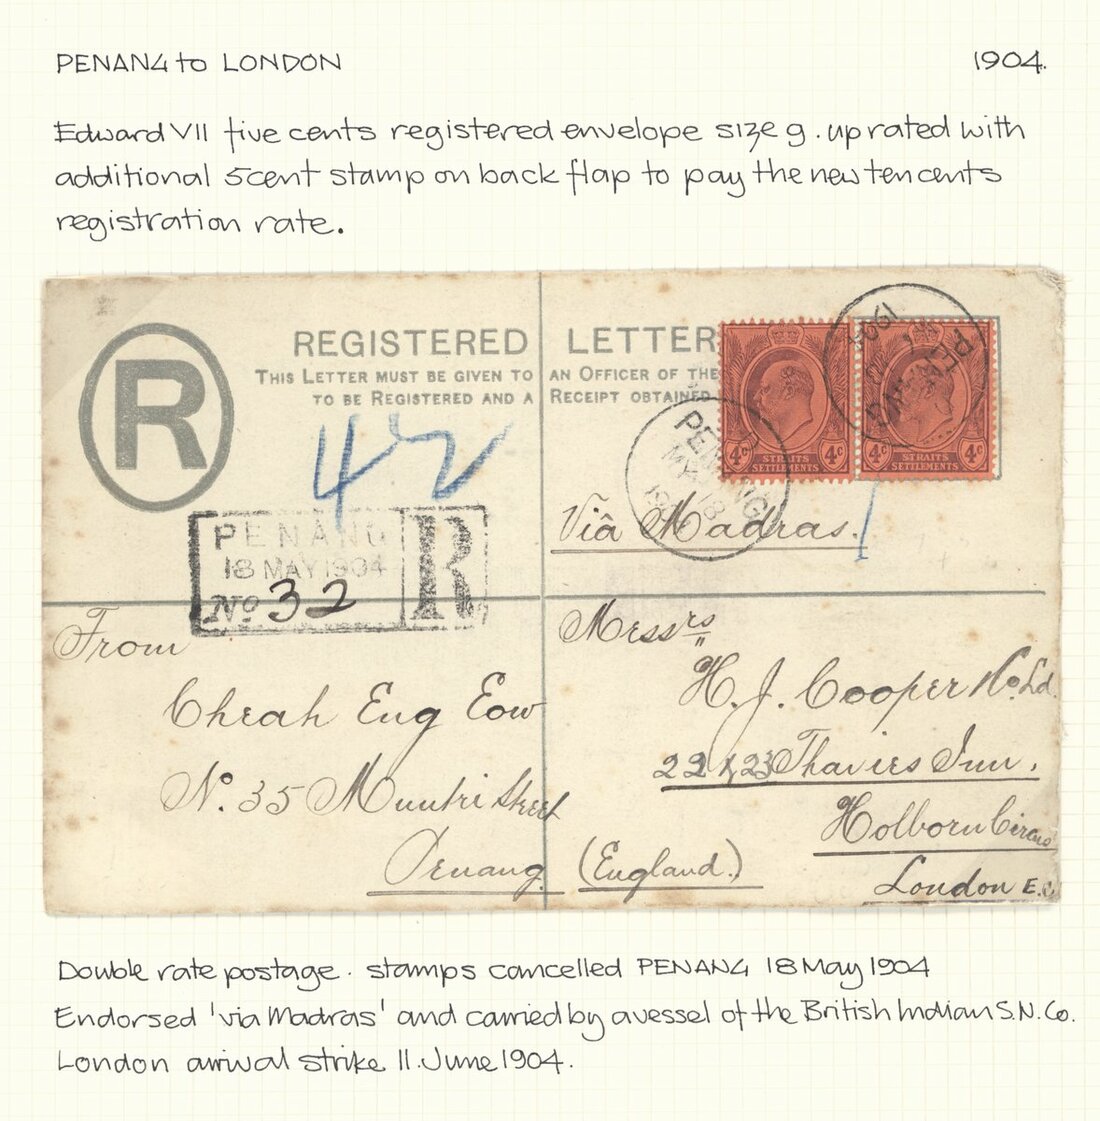 PENANG to LONDON
1904.
Edward VII five cents registered envelope size g. uprated with
additional 5 cent stamp on back flap to pay the new ten cents
registration rate.
R
REGISTERED LETTER
THIS LETTER MUST BE GIVEN TO AN OFFICER OF THE
TO BE REGISTERED AND A RECEIPT OBTAINED
4c 4c
STRAITS SETTLEMENTS
4c 4c
STRAITS SETTLEMENTS
PENANG
MY 18
PENANG
18 MAY 1904
No 32
R
Viâ Madras.
From
Cheah Eug Eow
No. 35 Muntri Street
Penang
Messrs
H. J. Cooper & Co. Ld.
22 & 23 Thavies Inn,
Holborn Circus
London E.C
(England.)
Double rate postage. stamps cancelled PENANG 18 May 1904
Endorsed 'via Madras' and carried by a vessel of the British Indian S.N. Co.
London arrival strike 11. June 1904.